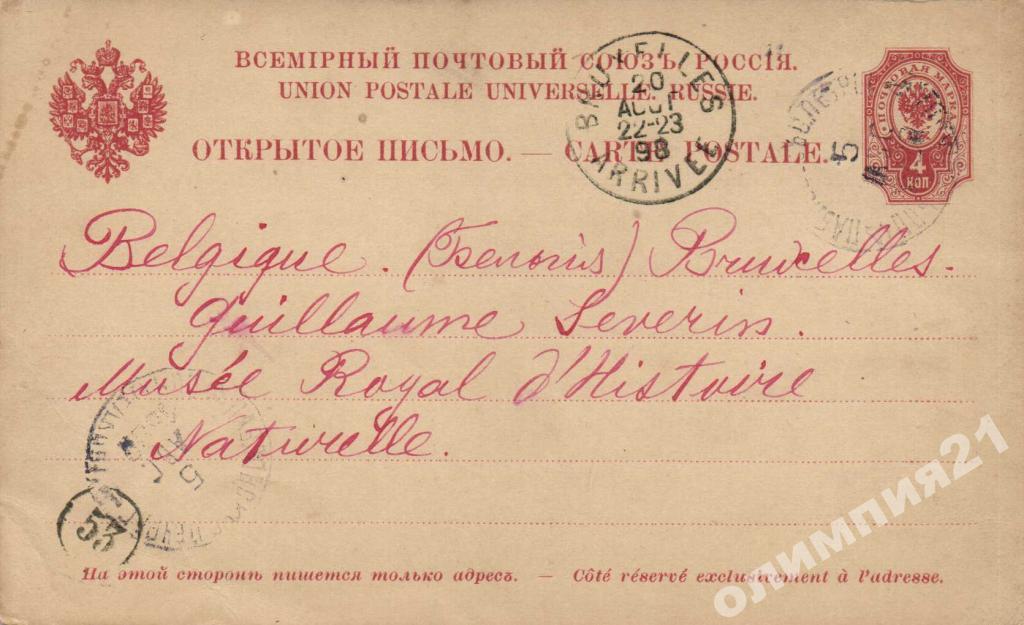 ВСЕМІРНЫЙ ПОЧТОВЫЙ СОЮЗЪ. РОССІЯ.
UNION POSTALE UNIVERSELLE. RUSSIE.
ОТКРЫТОЕ ПИСЬМО. — CARTE POSTALE.
BRUXELLES
20
AOUT
22-23
98
ARRIVEE
ПОЧТОВАЯ МАРКА
4
КОП
5
Belgique. Bruxelles.
Guillaume Severin.
Musée Royal d'Histoire
Naturelle.
5
53
На этой сторонѣ пишется только адресъ. — Côté réservé exclusivement à l'adresse.
олимпия21